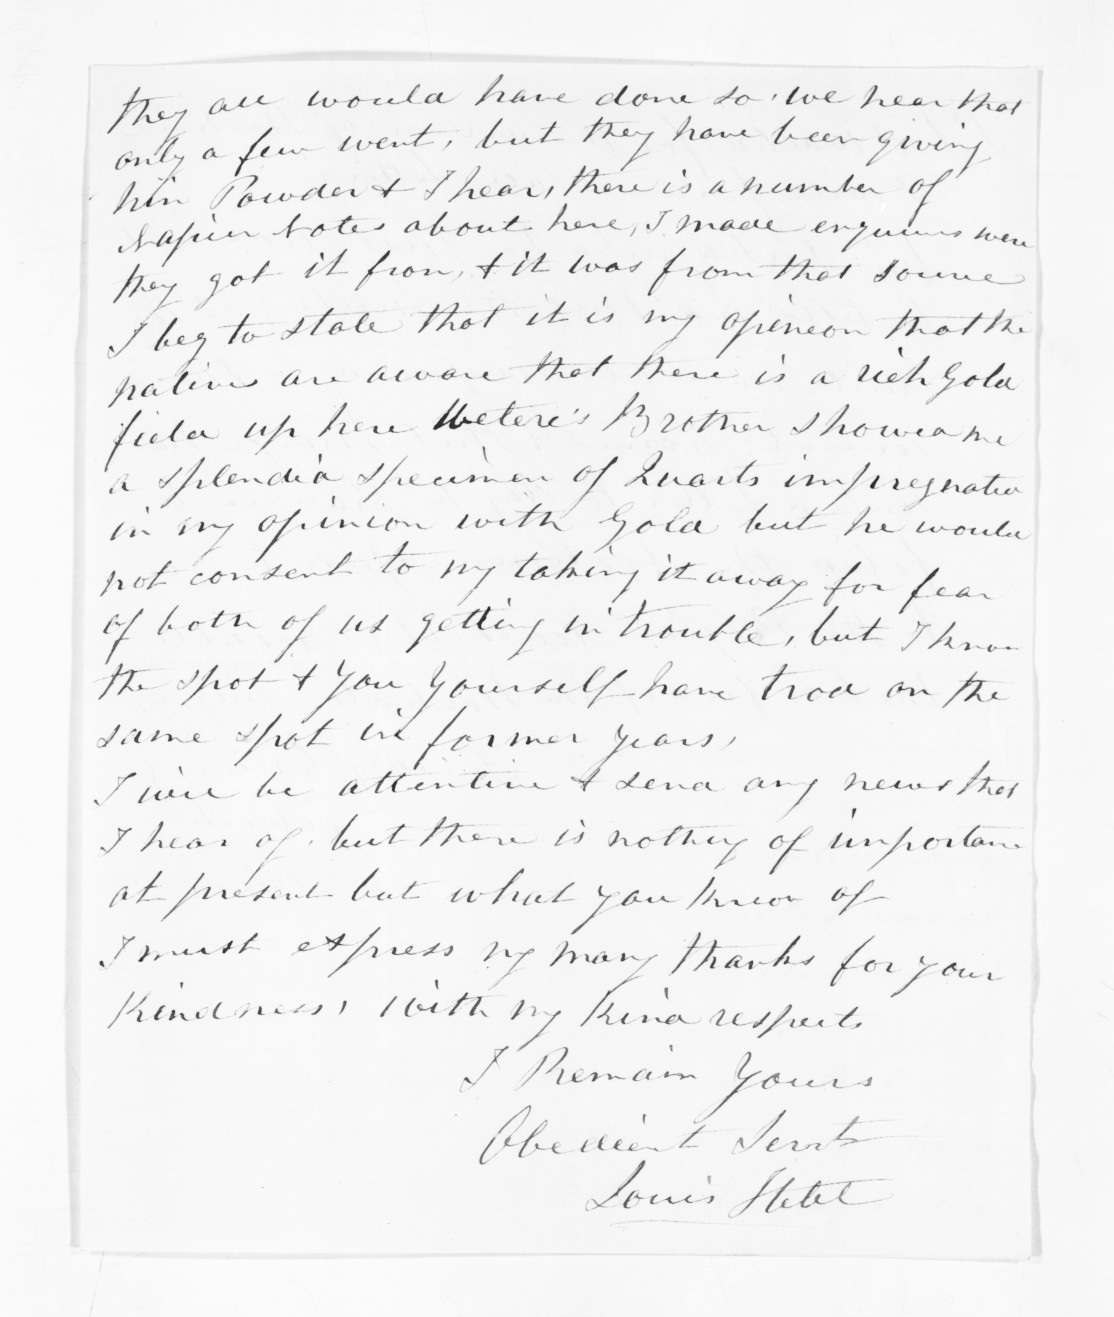 they all would have done so. we hear that
only a few went, but they have been giving
him Powder & I hear, there is a number of
Napier Notes about here, I made enquiries were
they got it from, & it was from that source
I beg to state that it is my opineon that the
natives are aware that there is a rich Gold
field up here Brother showed me
a splendid specimen of Quarts impregnated
in my opinion with Gold but he would
not consent to my taking it away for fear
of both of us getting in trouble, but I know
the spot & You Yourself have trod on the
same spot in former years,
I will be attentive & send any news that
I hear of. but there is nothing of importance
at present but what you know of
I must express my many thanks for your
Kindness, with my Kind respects
I Remain Yours
Obedient Servt
Louis